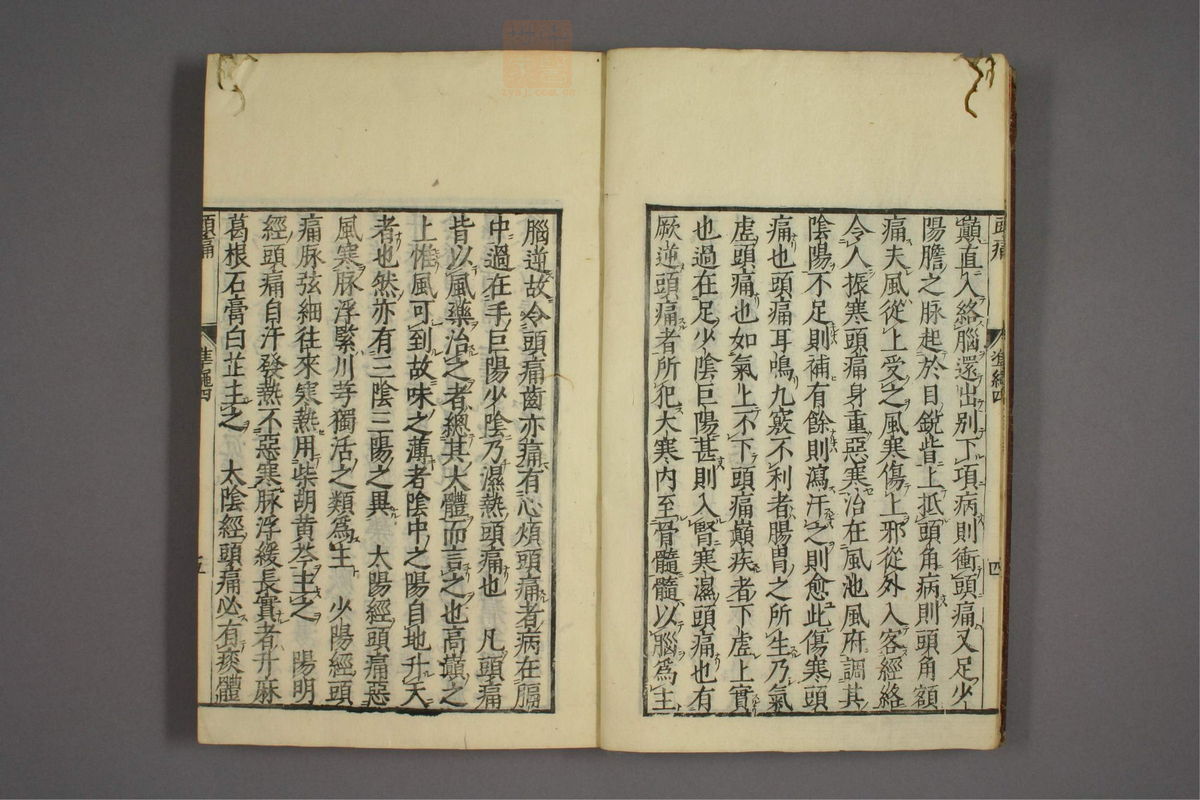 頭痛 準繩四 四
巓直入絡腦還出别下項病則衝頭痛又足少
陽膽之脉起於目銳眥上抵頭角病則頭角額
痛夫風從上受之風寒傷上邪從外入客經絡
令人振寒頭痛身重惡寒治在風池風府調其
陰陽不足則補有餘則瀉汗之則愈此傷寒頭
痛也頭痛耳鳴九竅不利者腸胃之所生乃氣
虛頭痛也如氣上不下頭痛巓疾者下虛上實
也過在足少陰巨陽甚則入腎寒濕頭痛也有
厥逆頭痛者所犯大寒内至骨髓髓以腦爲主
腦逆故令頭痛齒亦痛有心煩頭痛者病在膈
中過在手巨陽少陰乃濕熱頭痛也 凡頭痛
皆以風藥治之者總其大體而言之也高巓之
上惟風可到故味之薄者陰中之陽自地升天
者也然亦有三陰三陽之異 太陽經頭痛惡
風寒脉浮緊川芎獨活之類爲主 少陽經頭
痛脉弦細往來寒熱用柴胡黄芩主之 陽明
經頭痛自汗發熱不惡寒脉浮緩長實者升麻
葛根石膏白芷主之 太陰經頭痛必有痰體
頭痛 準繩四 五